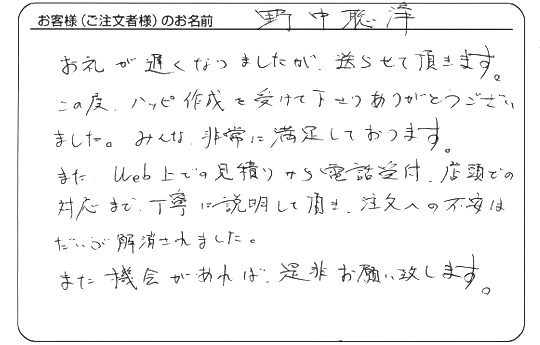 お客様(ご注文者様)のお名前 野中聡洋
お礼が遅くなりましたが、送らせて頂きます。
この度、ハッピ作成を受けて下さりありがとうござい
ました。みんな、非常に満足しております。
また Web上での見積りから電話受付、店頭での
対応まで、丁寧に説明して頂き、注文への不安は
だいぶ解消されました。
また機会があれば、是非お願い致します。